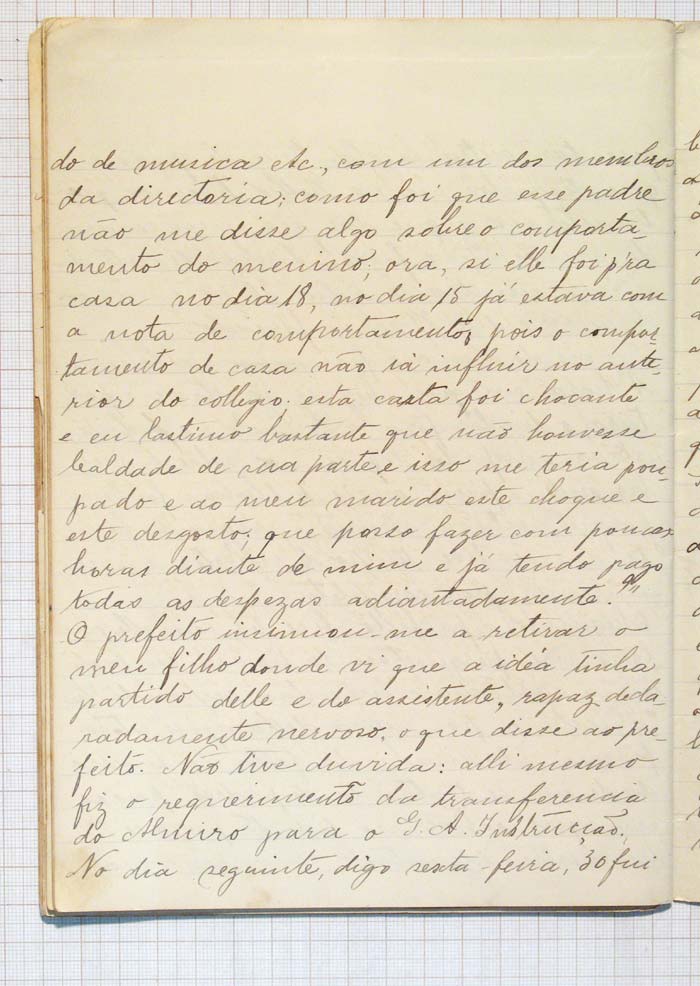 do de musica etc., com um dos membros
da directoria; como foi que esse padre
não me disse algo sobre o comporta-
mento do menino; ora, si elle foi p'ra
casa no dia 18, no dia 15 já estava com
a nota de comportamento, pois o compor-
tamento de casa não ia influir no ante-
rior do collegio; esta carta foi chocante
e eu lastimo bastante que não houvesse
lealdade de sua parte e isso me teria pou-
pado e ao meu marido este choque e
este desgosto; que posso fazer com poucas
horas diante de mim e já tendo pago
todas as despezas adiantadamente."
O prefeito insinuou-me a retirar o
meu filho donde vi que a idéa tinha
partido delle e do assistente, rapaz decla-
radamente nervoso, o que disse ao pre-
feito. Não tive duvida: alli mesmo
fiz o requerimento da transferencia
do Almiro para o G. A. Instrucção.
No dia seguinte, digo sexta-feira, 30 fui